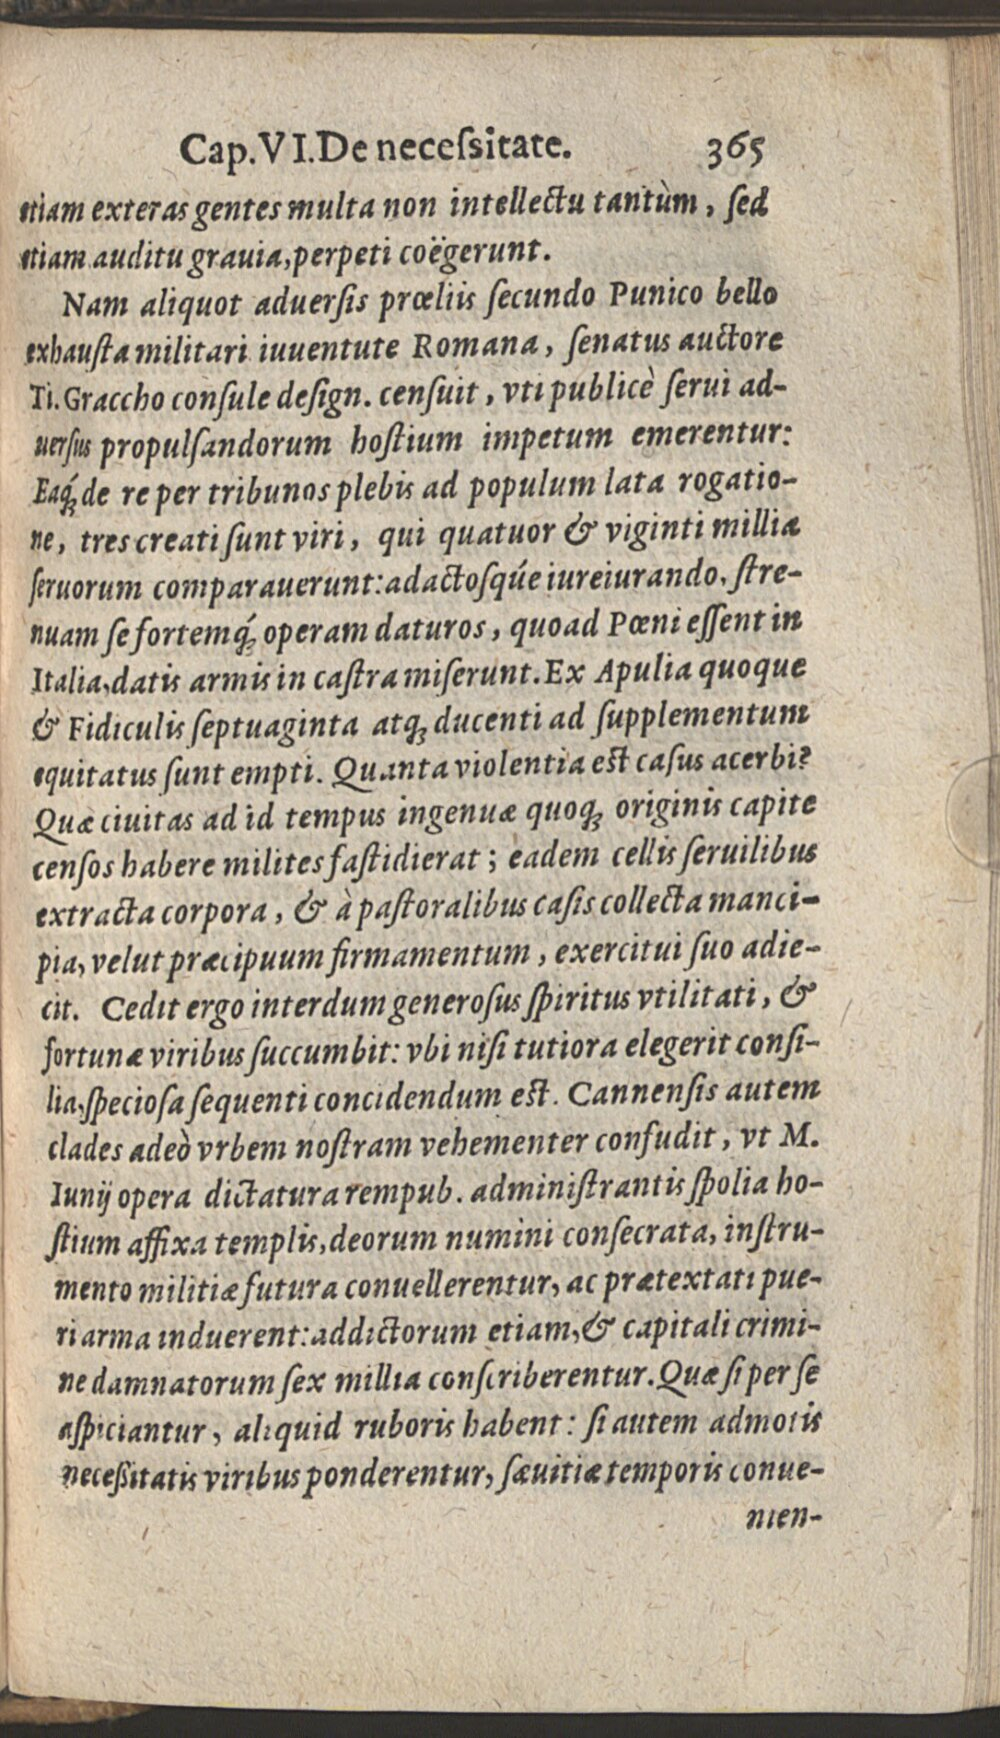 Cap. VI. De neceſsitate. 365
etiam exteras gentes multa non intellectu tantùm, ſed
etiam auditu grauia, perpeti coëgerunt.
Nam aliquot aduerſis prœliis ſecundo Punico bello
exhauſta militari iuuentute Romana, ſenatus auctore
Ti. Graccho conſule deſign. cenſuit, vti publicè ſerui ad-
uerſus propulſandorum hoſtium impetum emerentur:
Eaq́ꝫ de re per tribunos plebis ad populum lata rogatio-
ne, tres creati ſunt viri, qui quatuor & viginti millia
ſeruorum comparauerunt: adactoſqúe iureiurando, ſtre-
nuam ſe fortemq́ꝫ operam daturos, quoad Pœni eſſent in
Italia, datis armis in caſtra miſerunt. Ex Apulia quoque
& Fidiculis ſeptuaginta atqꝫ ducenti ad ſupplementum
equitatus ſunt empti. Quanta violentia est caſus acerbi?
Quæ ciuitas ad id tempus ingenuæ quoqꝫ originis capite
cenſos habere milites faſtidierat; eadem cellis ſeruilibus
extracta corpora, & à paſtoralibus caſis collecta manci-
pia, velut præcipuum firmamentum, exercitui ſuo adie-
cit. Cedit ergo interdum generoſus ſpiritus vtilitati, &
fortunæ viribus ſuccumbit: vbi niſi tutiora elegerit conſi-
lia, ſpecioſa ſequenti concidendum est. Cannenſis autem
clades adeò vrbem noſtram vehementer confudit, vt M.
Iunij opera dictatura rempub. adminiſtrantis ſpolia ho-
ſtium affixa templis, deorum numini conſecrata, inſtru-
mento militiæ futura conuellerentur, ac prætextati pue-
ri arma induerent: addictorum etiam, & capitali crimi-
ne damnatorum ſex millia conſcriberentur. Quæ ſi per ſe
aſpiciantur, aliquid ruboris habent: ſi autem admotis
neceſsitatis viribus ponderentur, ſæuitiæ temporis conue-
nien-